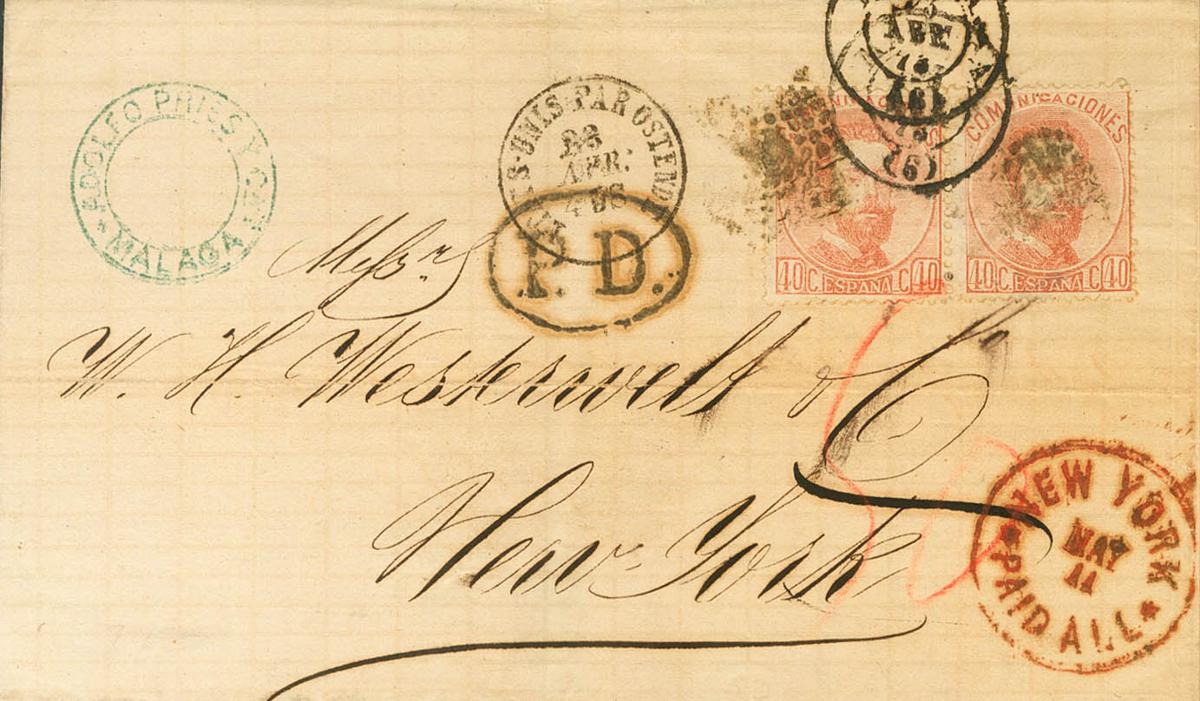 ADOLFO PRIES Y CA
* MALAGA *
-UNIS-PAR OSTENDE
26
AVR.
P. D.
ABR
(6)
(6)
COMUNICACIONES
40 C. ESPAÑA C 40
COMUNICACIONES
40 C. ESPAÑA C 40
Messrs
W. H. Westervelt & Co
New-York
NEW YORK
MAY
11
* PAID ALL *